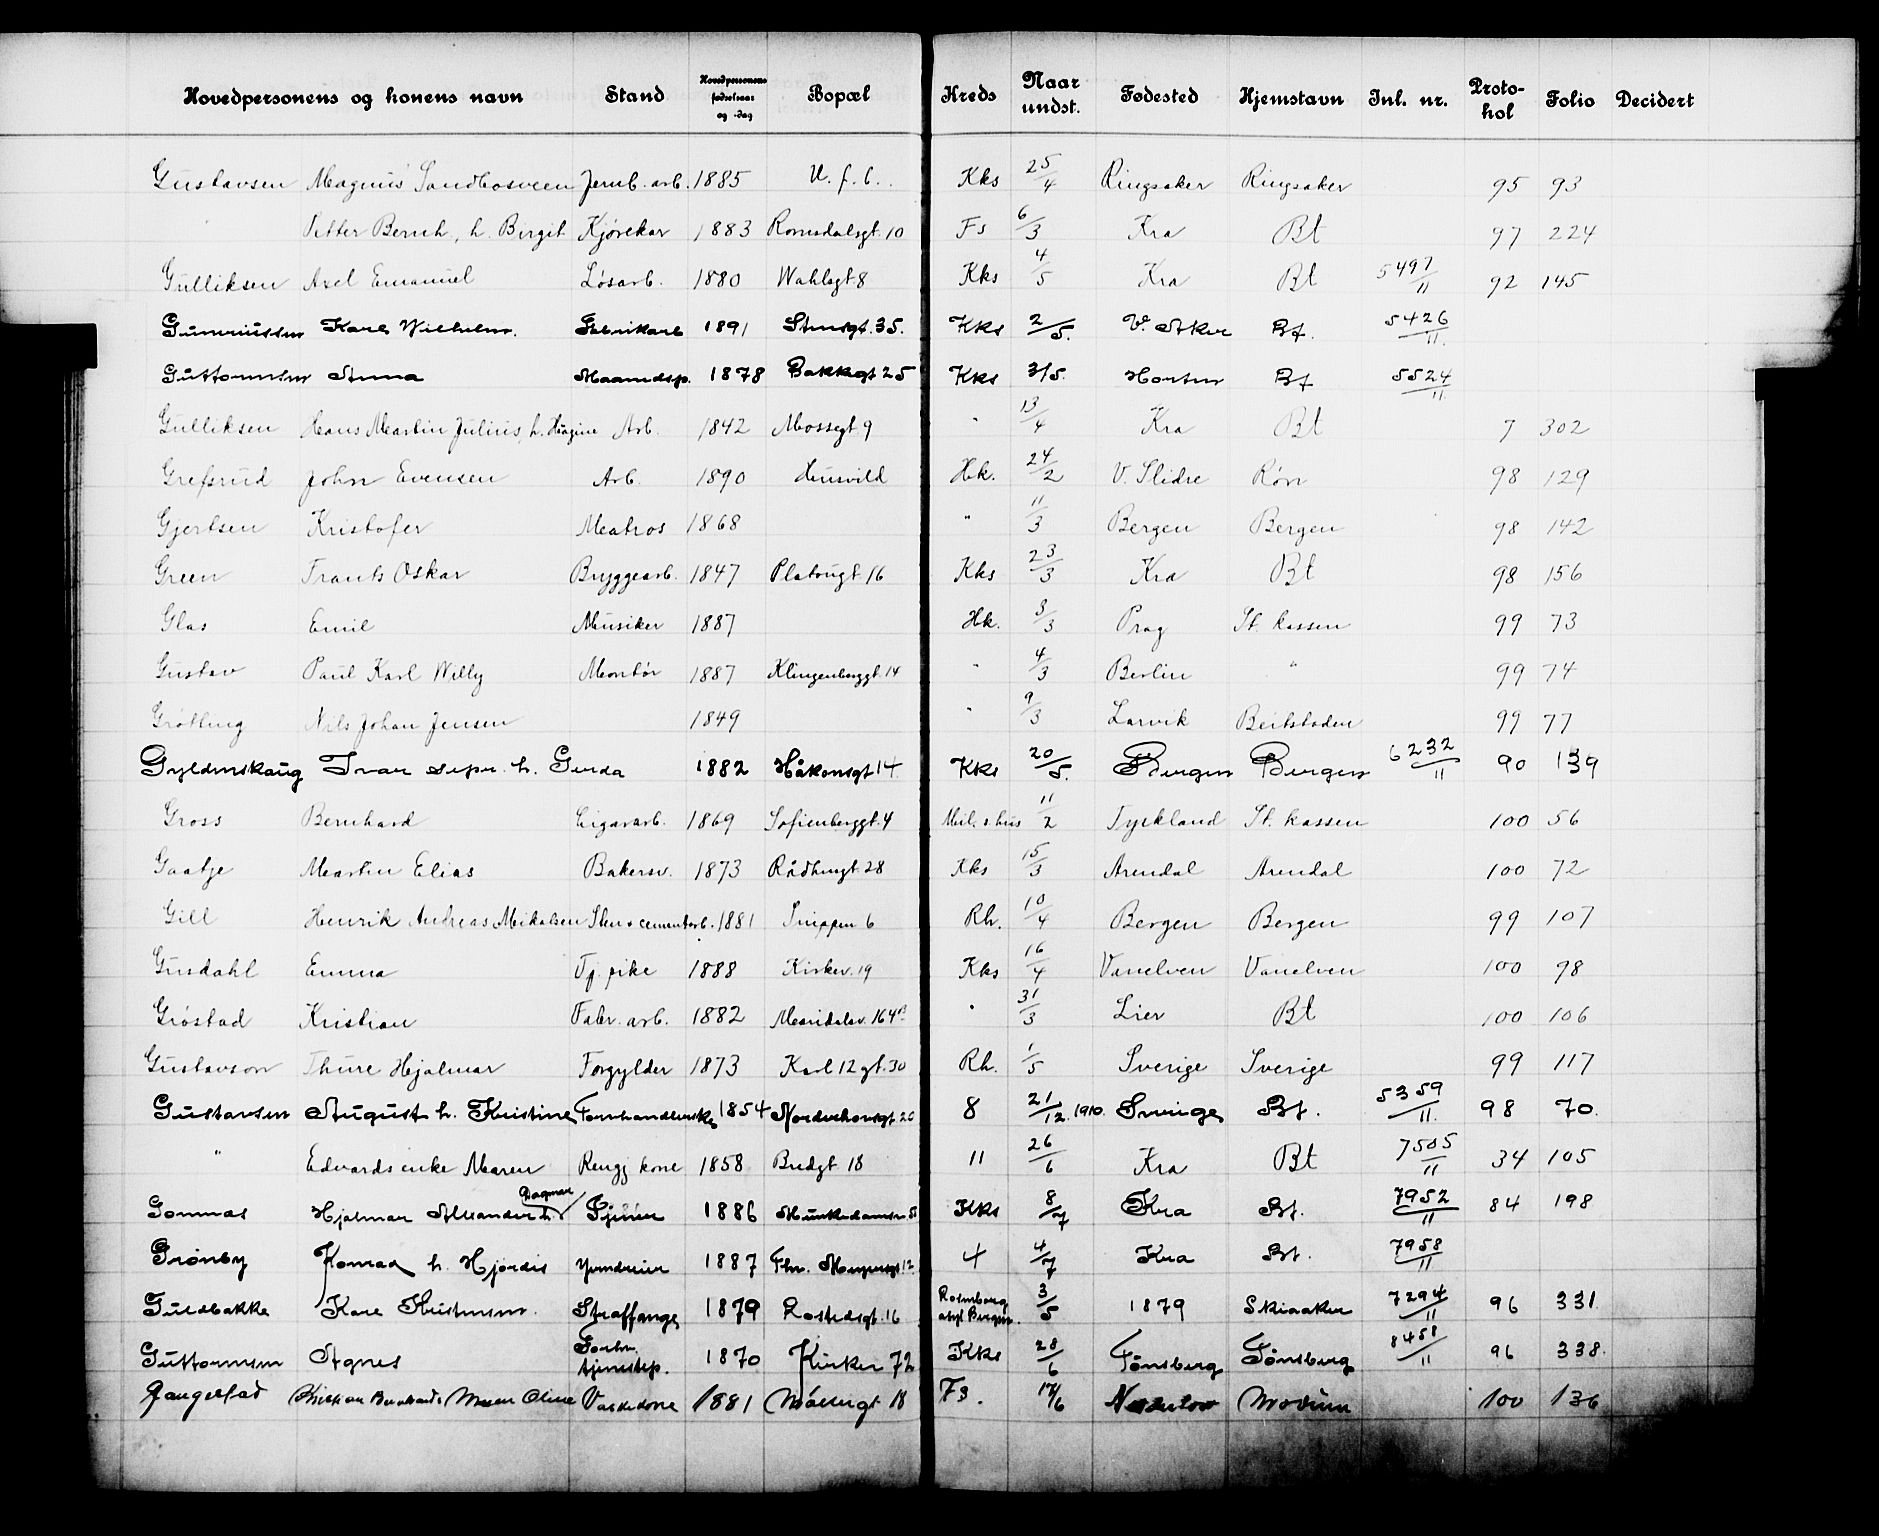 Hovedpersonens og konens navn Stand Hovedpersonens fødselsaar og -dag Bopæl Kreds Naar undst. Fødested Hjemstavn Inl. nr. Protokol Folio Decidert
Gustavsen Magnus Sandbosveen Jernb. arb. 1885 U. f. b. Kks 25/4 Ringsaker Ringsaker 95 93
Petter Bernh, h. Birgit Kjørekar 1883 Romsdalsgt. 10 Fs 6/3 Kra Bt 97 224
Gulliksen Axel Emanuel Løsarb. 1880 Wahlsgt 8 Kks 4/5 Kra Bt 5497/11 92 145
Gunnriussen Karl Wilhelm. Fabrikarb 1891 Stensgt. 35. Kks 2/5. V. Aker Bt. 5426/11.
Guttormsen Anna Maanedsp. 1878 Bakkegt 25 Kks 3/5. Horten Bt 5524/11
Gulliksen Hans Martin Julius, h. Hagine Arb. 1842 Mossegt 9 " 13/4 Kra Bt 7 302
Grefsrud John Evensen Arb. 1890 Husvild Hk. 24/2 V. Slidre Røn 98 129
Gjertsen Kristofer Matros 1868 " 11/3 Bergen Bergen 98 142
Green Frants Oskar Bryggearb. 1847 Platougt 16 Kks 23/3 Kra Bt 98 156
Glas Emil Musiker 1887 Hk. 3/3 Prag St. kassen 99 73
Gustav Paul Karl Willy Montør 1887 Klingenberggt. 14 " 4/3 Berlin " 99 74
Grøtting Nils Johan Jensen 1849 " 9/3 Larvik Beitstaden 99 77
Gyldenskaug Ivar sepr. h. Gerda 1882 Håkonsgt 14 Kks 20/5. Bergen Bergen 6232/11 90 139
Gross Bernhard Cigararb. 1869 Sofienberggt. 4 Mil. s. hus 11/2 Tyskland St. kassen 100 56
Gaatje Martin Elias Bakersv. 1873 Rådhusgt 28 Kks 15/3 Arendal Arendal 100 72
Gill Henrik Andreas Mikalsen Sten & cementarb. 1881 Snippen 6 Rh. 10/4 Bergen Bergen 99 107
Gusdahl Emma Tj. pike 1888 Kirkev. 19 Kks 16/4 Vanelven Vanelven 100 98
Grøstad Kristian Fabr. arb. 1882 Maridalsv. 164 B " 31/3 Lier Bt 100 106
Gustavson Thure Hjalmar Forgylder 1873 Karl 12 gt. 30 Rh. 1/5 Sverige Sverige 99 117
Gustavsen August h. Kristine 1854 20 8 21/12. 1910. Sverige Bt. 5359/11. 98 70.
" Edvards enke Maren Rengj kone 1858 Bredgt 18 11 26/6 Kra Bt 7505/11 34 105
Gomnæs Hjalmar Alexander h. Dagmar 1886 Munkedamsv. Kks 8/7 Kra Bt. 7952/11 84 198
Grønby Konrad h. Hjørdis 1887 Thv. Meyersgt 12 4 4/7 Kra Bt. 7958/11
Guldbakke Kare Kristensen. Straffange 1879 Rostedsgt. 16 Rosenberg asyl Bergen. 3/5 1879 Skiaaker 7294/11 96 331.
Guttormsen Agnes Forhv. tjenestep. 1870 Kirkev 72 Kks 28/6 Tønsberg Tønsberg 8458/11 96 338.
Gaugestad Kristian Bernhard Oline Vaskekone 1881 Møllergt 18 Fs. 17/6 Modum 100 136